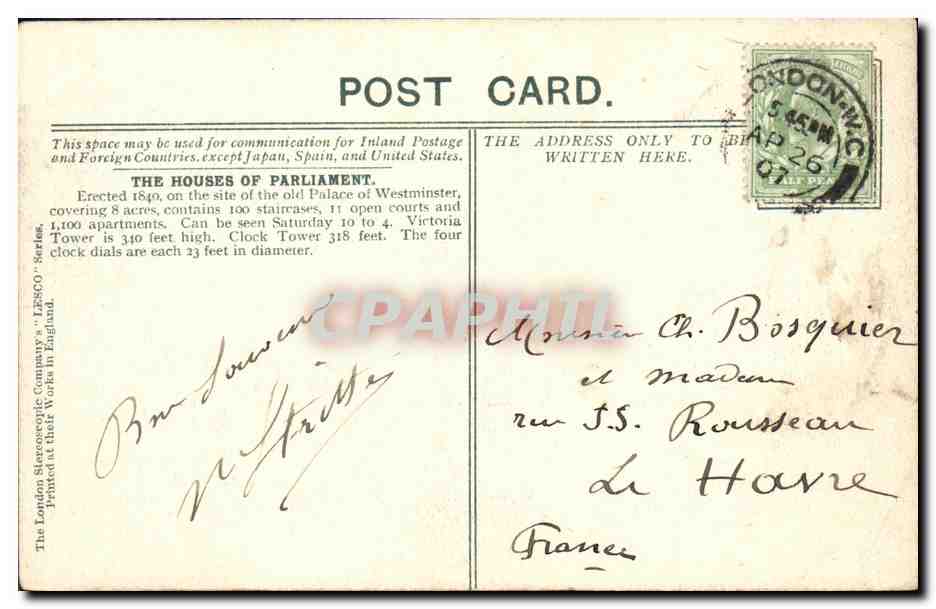 POST CARD.
This space may be used for communication for Inland Postage
and Foreign Countries, except Japan, Spain, and United States.
THE HOUSES OF PARLIAMENT.
Erected 1840, on the site of the old Palace of Westminster,
covering 8 acres, contains 100 staircases, 11 open courts and
1,100 apartments. Can be seen Saturday 10 to 4. Victoria
Tower is 340 feet high. Clock Tower 318 feet. The four
clock dials are each 23 feet in diameter.
The London Stereoscopic Company's "LESCO" Series,
Printed at their Works in England.
Bon Souvenir
THE ADDRESS ONLY TO BE
WRITTEN HERE.
LONDON·W.C
5.45PM
AP 26
07
HALF PEN
Monsieur Ch. Bosquier
et madame
rue J.S. Rousseau
Le Havre
France
CPAPHIL